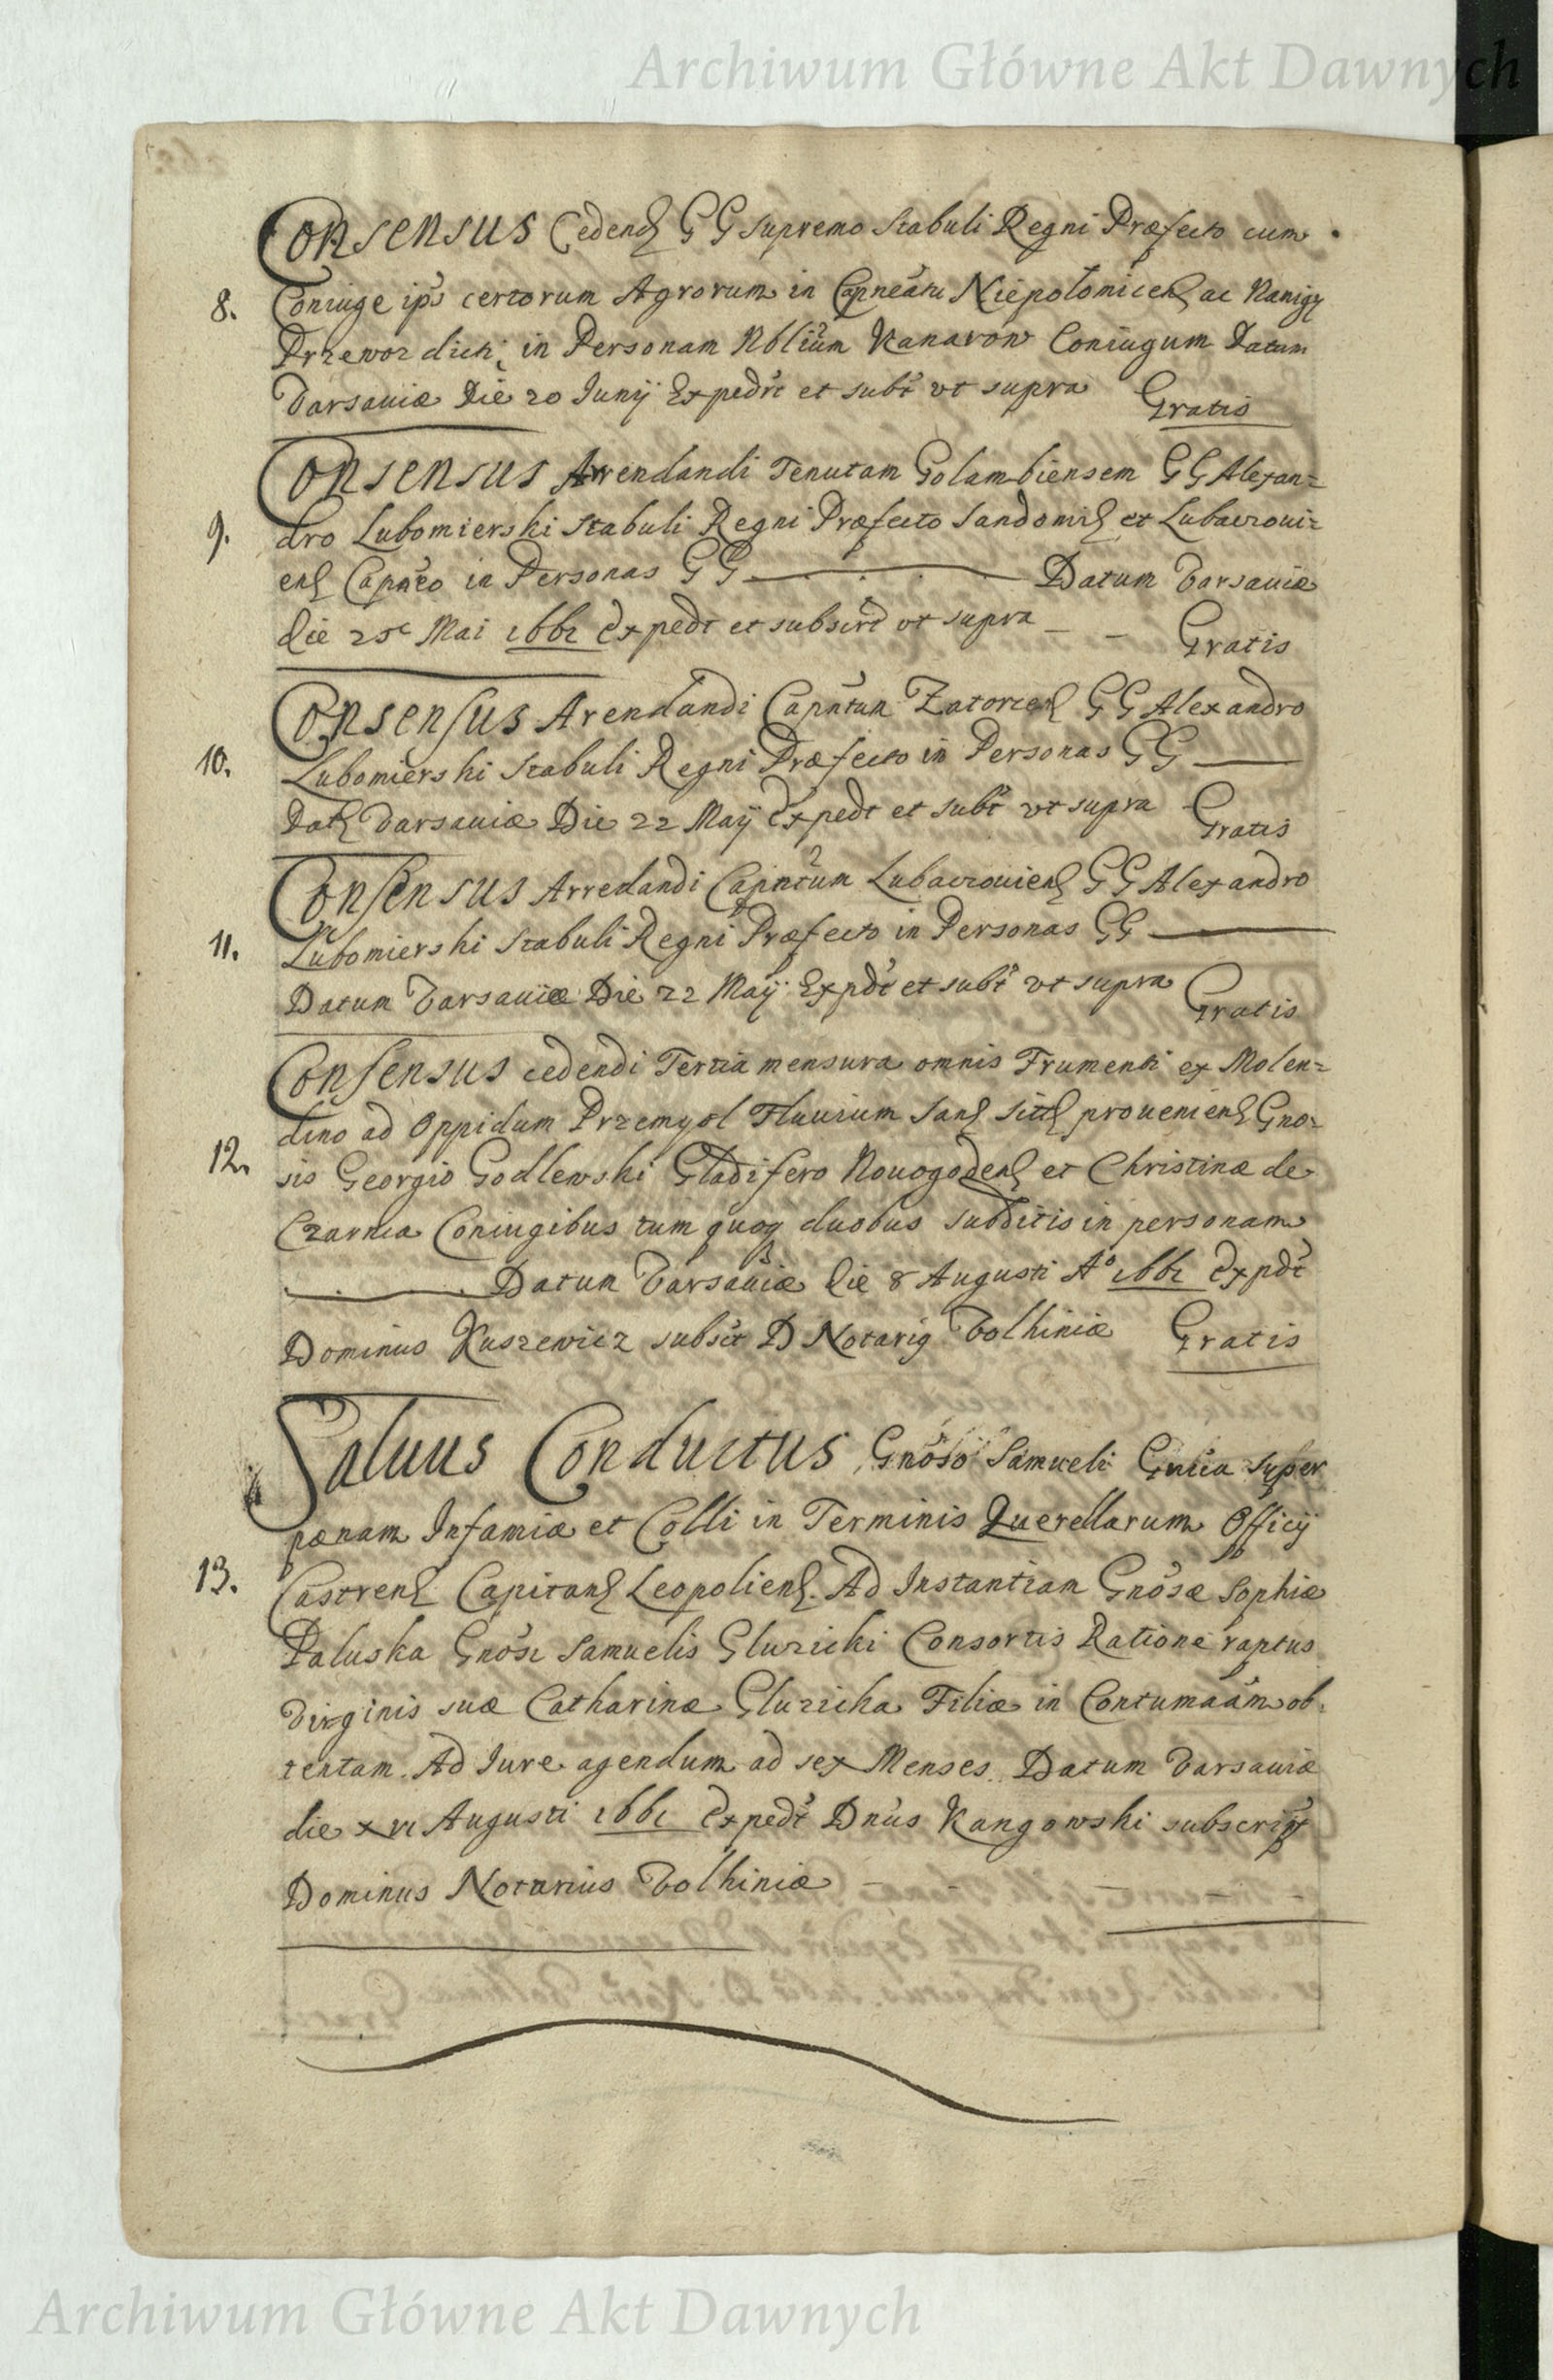 Archiwum Główne Akt Dawnych
Consensus Cedend GG supremo Stabuli Regni Præfecto cum
8. Coniuge ips certorum Agrorum in Capneatu Niepolomicen ac
in Personam Nblium Kanarow Coniugum Datum
Varsauiæ Die 20 Junÿ Expedit et subt vt supra Gratis
Consensus Arrendandi Tenutam Golambiensem GG Alexan=
9. dro Lubomierski Stabuli Regni Præfecto Sandomi et Lubaczoui=
en Capneo in Personas GG Datum Varsauiæ
die 25 Mai 1661 Expedt et subscrt vt supra Gratis
Consensus Arendandi Capntun Zatorien GG Alexandro
10. Lubomierski Stabuli Regni Præfecto in Personas GG
Dat Varsauiæ Die 22 Maÿ Expedt et subt vt supra Gratis
Consensus Arredandi Capntum Lubaczouien GG Alexandro
11. Lubomierski Stabuli Regni Præfecto in Personas GG
Datum Varsauiæ Die 22 Maÿ Expdt et subt vt supra Gratis
Consensus cedendi Tertia mensura omnis Frumenti ex Molen=
dino ad Oppidum Przemysl Fluuium San sitt prouenien Gno=
12. sis Georgio Godlewski Gladifero Nouogoden et Christinæ de
Czarnca Coniugibus tum quoq duobus subditis in personam
Datum Varsauiæ die 8 Augusti Aº 1661 Expdt
Dominus Kuszewicz subsct D Notari Volhiniæ Gratis
Saluus Conductus Gnoso Samueli super
pœnam Infamiæ et Colli in Terminis Querellarum Officÿ
13. Castren Capitan Leopolien. Ad Instantiam Gnosæ Sophiæ
Paluska Gnosi Samuelis Gluzicki Consortis Ratione raptus
Virginis suæ Catharinæ Gluzicka Filiæ in Contumaam ob=
tentam. Ad Jure agendum ad sex Menses. Datum Varsauiæ
die xvi Augusti 1661 Expedt Dnus Kangowski subscript
Dominus Notarius Volhiniæ
Archiwum Główne Akt Dawnych